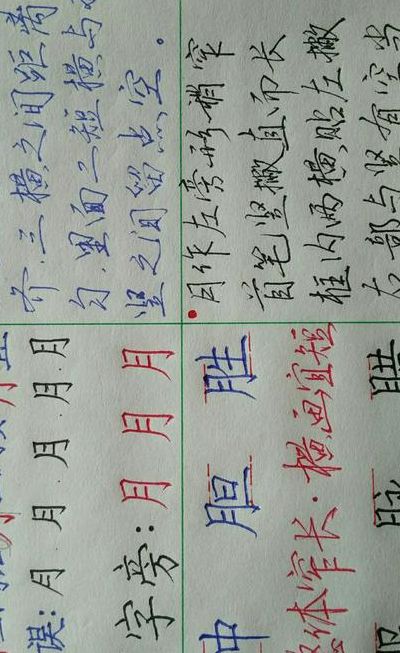 齐.三横之间距离
匀.里面二短横与
竖之间留点空。
误:月.月.月.月.月
字旁:月月月
月作左旁形稍窄
首笔竖撇直而长
框内两横贴左撇
右部与竖有空当
胆 胜
体窄长.横画宜短